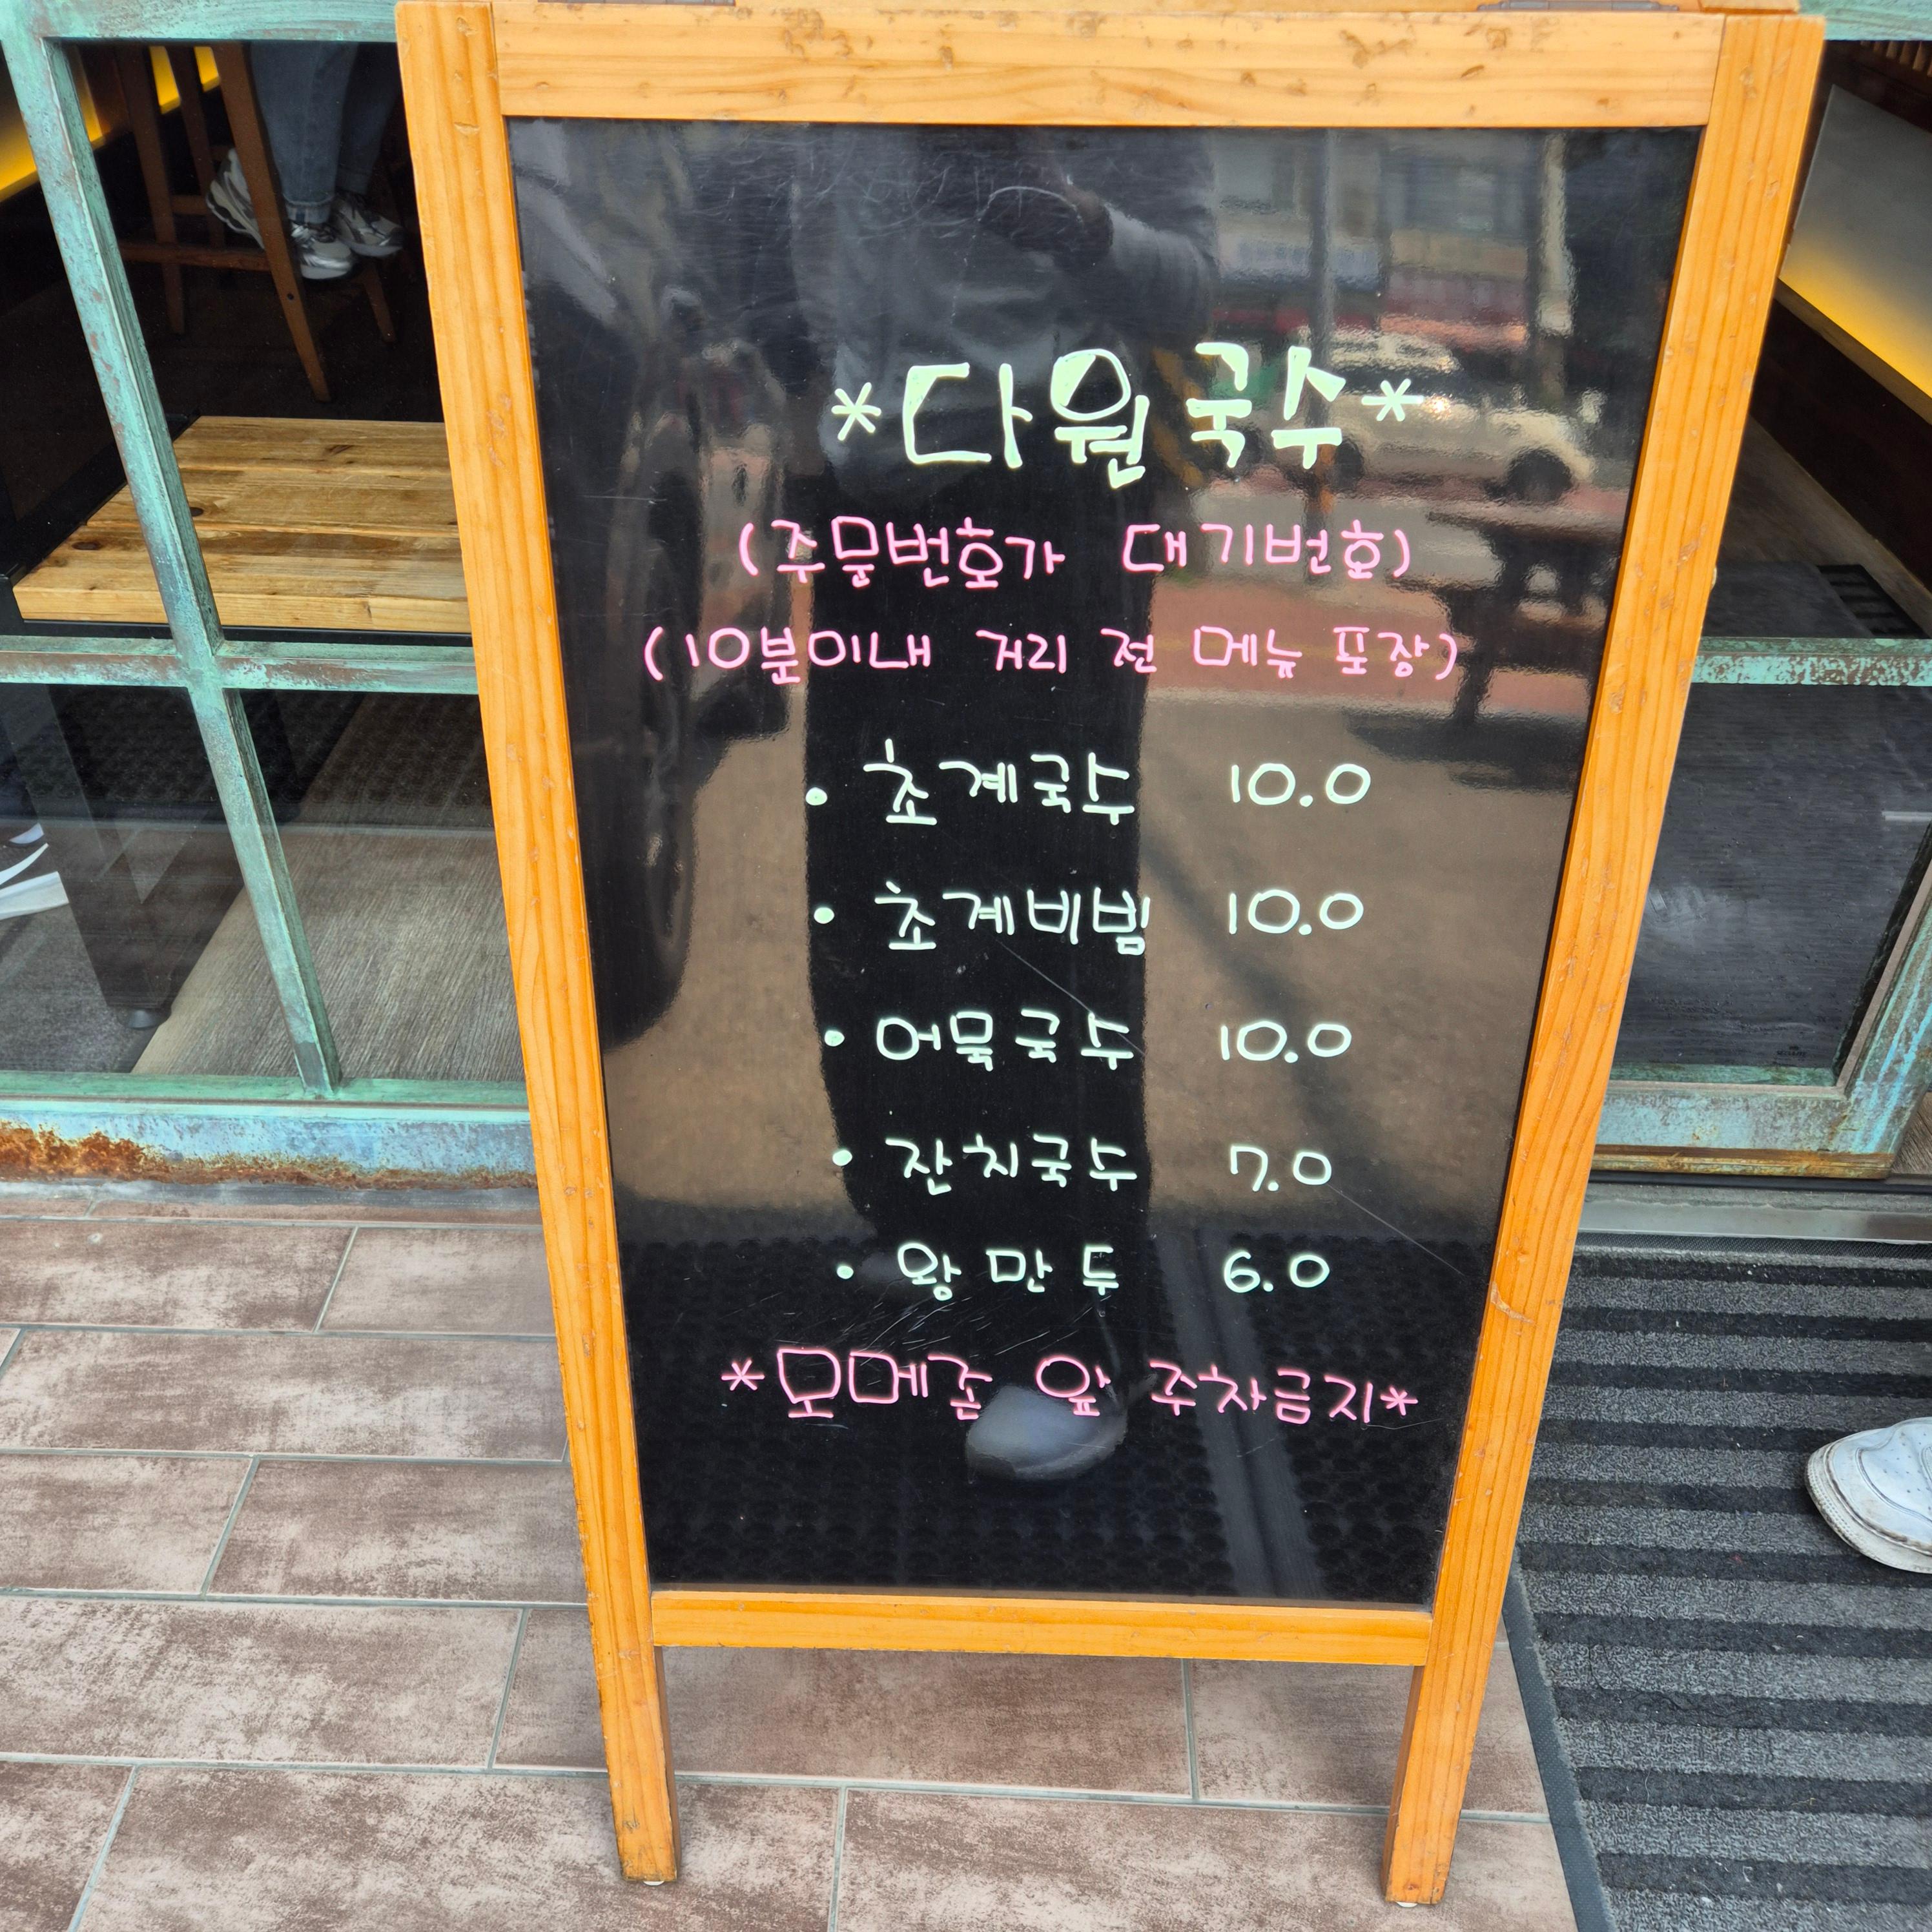 *다원국수*
(주문번호가 대기번호)
(10분이내 거리 전 메뉴 포장)
• 초계국수 10.0
• 초계비빔 10.0
• 어묵국수 10.0
• 잔치국수 7.0
• 왕만두 6.0
*모메존 앞 주차금지*